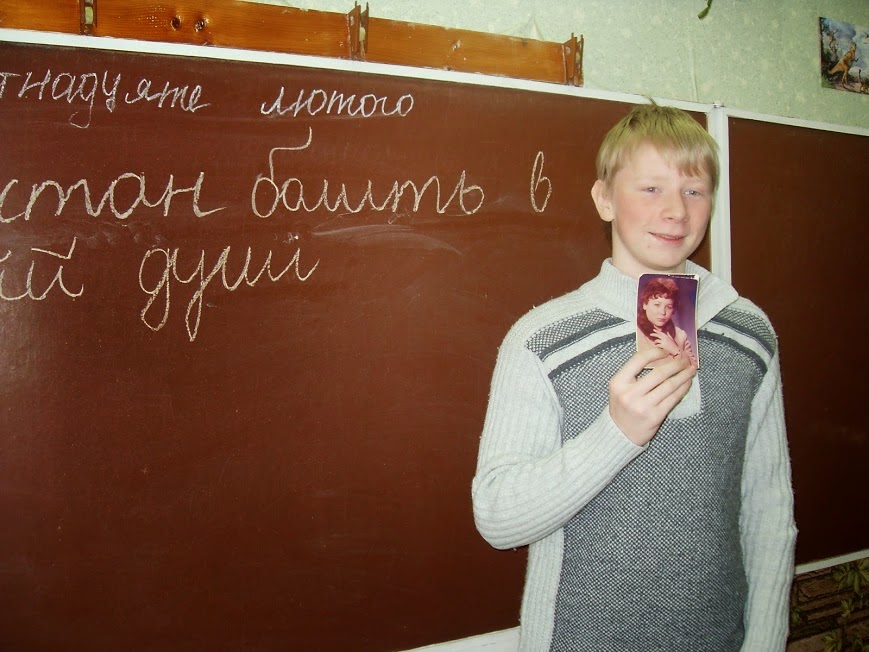 тнадцяте лютого
істан болить в
їй душі